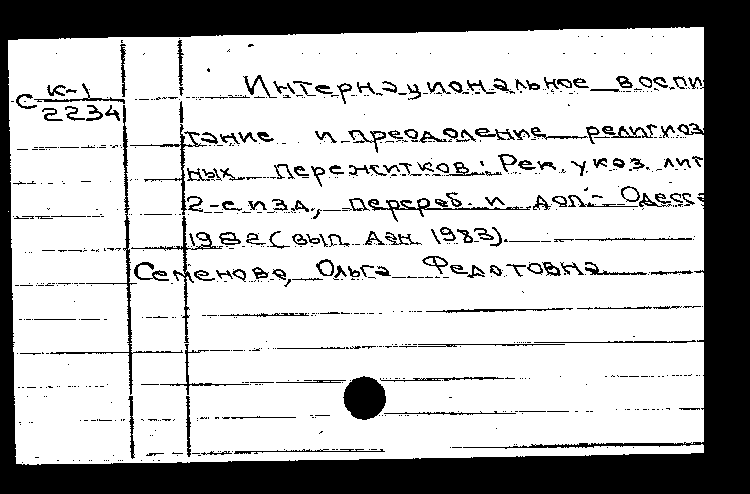 С К-1
2234
Интернациональное воспи
тание и преодоление религиоз
ных пережитков: Рек. указ. лит
2-е изд., перераб. и доп.- Одесса
1982 (вып. дан. 1983).
Семенова, Ольга Федотовна.